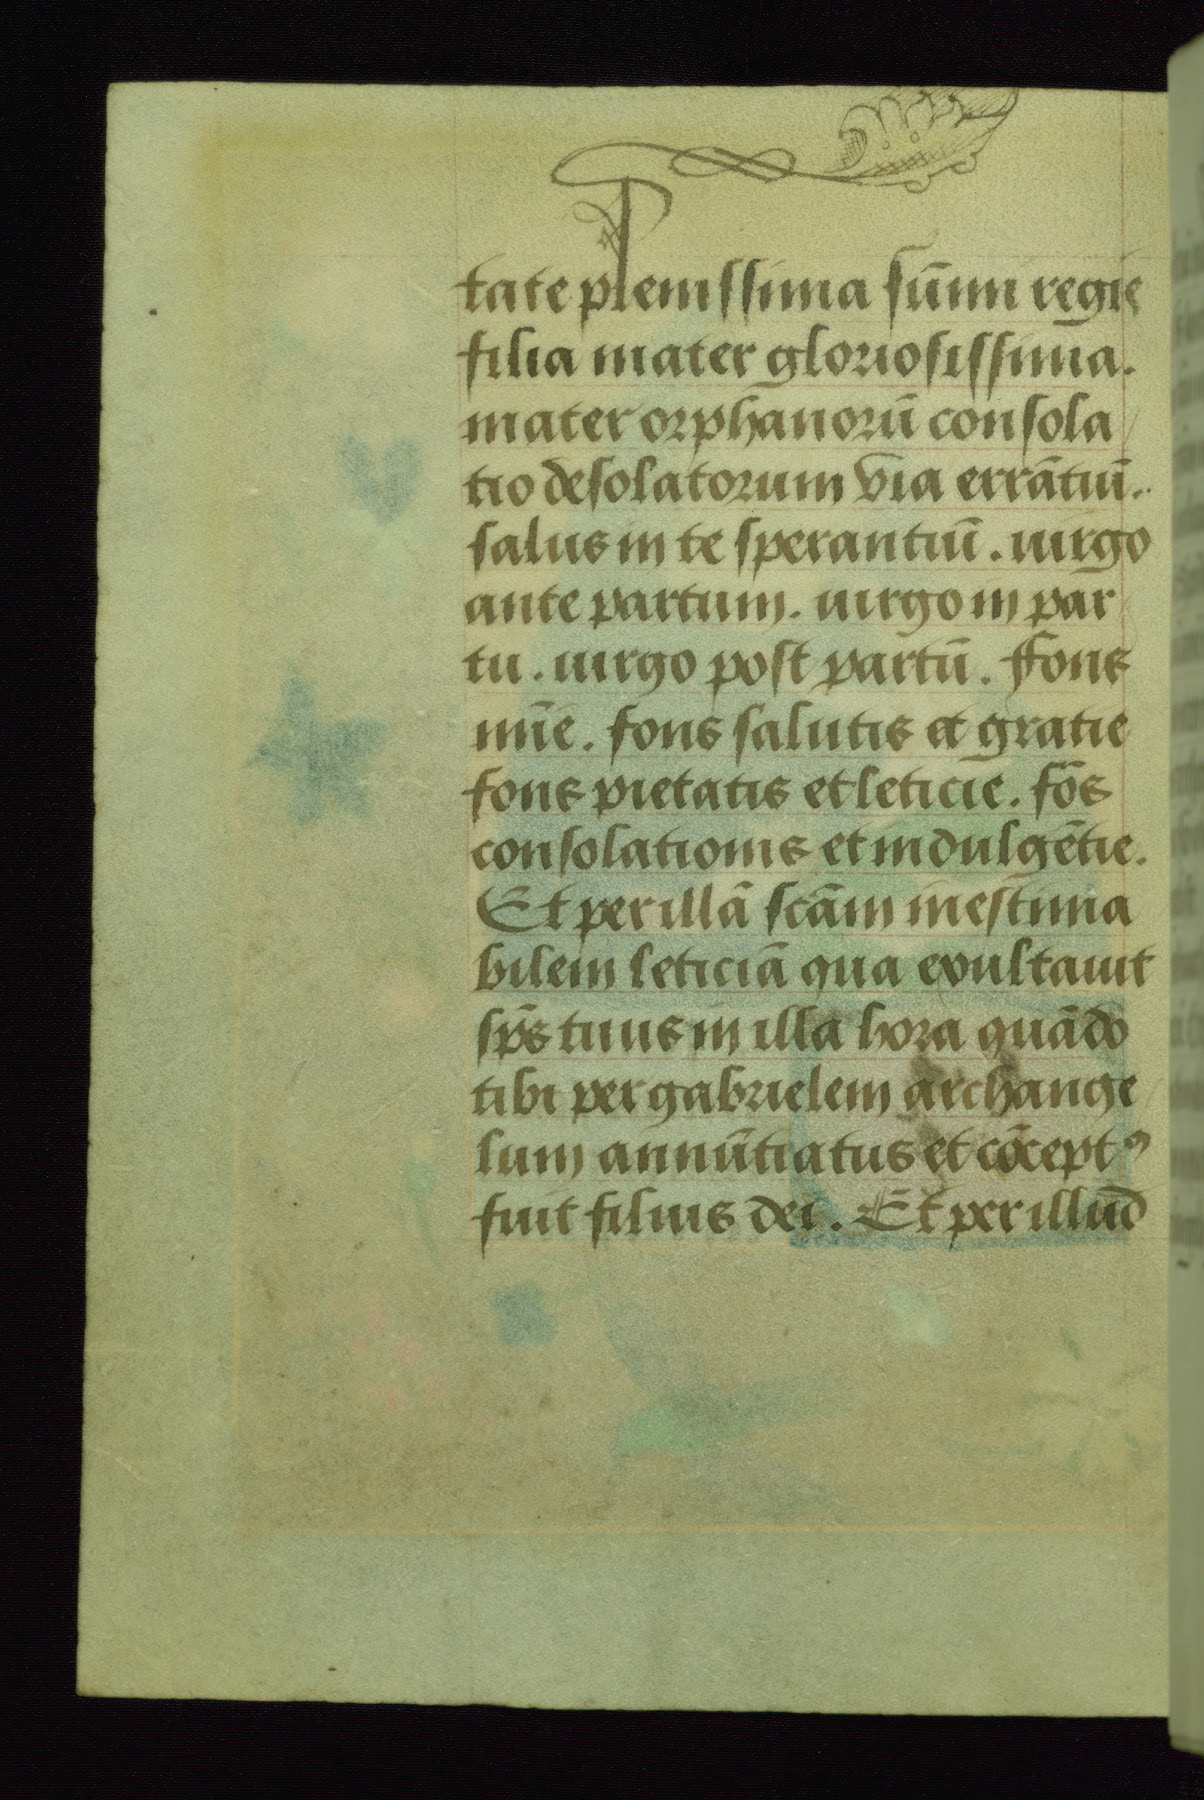 tate plenissima sum̄i regis
filia mater gloriosissima.
mater orphanorū consola
tio desolatorum via errātiū.
salus in te sperantiū. uirgo
ante partum. uirgo in par
tu. uirgo post partū. ffons
mīe. fons salutis et gratie
fons pietatis et leticie. fōs
consolationis et indulgētie.
Et per illā scām inestima
bilem leticiā qua exultauit
sp̄s tuus in illa hora quādo
tibi per gabrielem archange
lum annūtiatus et cōceptꝰ
fuit filius dei. Et per illud